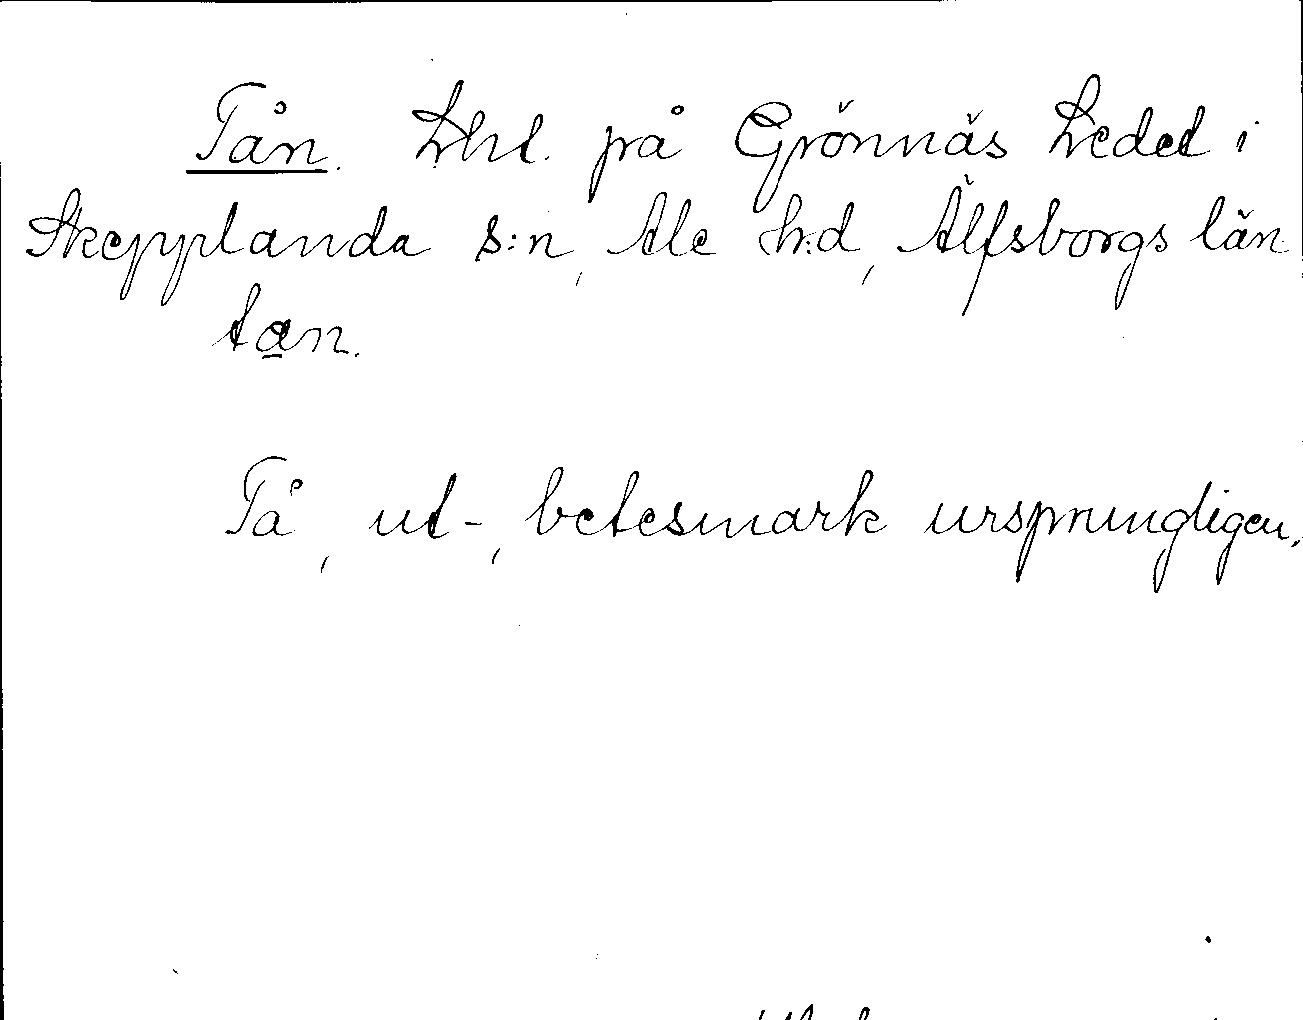 Tån. Lht. på Grönnäs Ledet i
Skepplanda s:n, Ale h:d, Älfsborgs län.
tan.
Tå, ut-, betesmark ursprungligen.